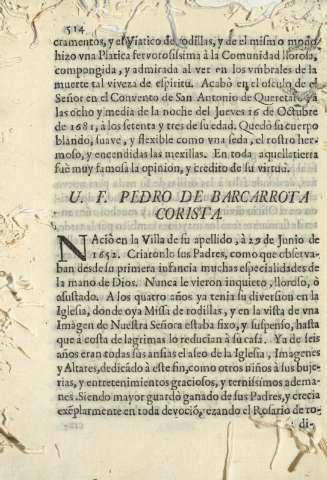 514
cramentos, y el Viatico de rodillas, y de el mismo modo
hizo vna Platica fervorosissima à la Comunidad llorosa,
compongida, y admirada al ver en los vmbrales de la
muerte tal viveza de espiritu. Acabò en el osculo de el
Señor en el Convento de San Antonio de Queretaro, à
las ocho y media de la noche del Jueves 16 de Octubre
de 1681, à los setenta y tres de su edad. Quedò su cuerpo
blando, suave, y flexible como vna seda, el rostro her-
moso, y encendidas las mexillas. En toda aquella tierra
fuè muy famosa la opinion, y credito de su virtud.
U. F. PEDRO DE BARCARROTA
CORISTA.
NAciò en la Villa de su apellido, à 29 de Junio de
1652. Criaronlo sus Padres, como que observa-
ban desde su primera infancia muchas especialidades de
la mano de Dios. Nunca le vieron inquieto, lloroso, ò
asustado. A los quatro años ya tenia su diversion en la
Iglesia, donde oya Missa de rodillas, y en la vista de vna
Imàgen de Nuestra Señora estaba fixo, y suspenso, hasta
que à costa de lagrimas lo reducian à su casa. Ya de seis
años eran todas sus ansias el aseo de la Iglesia, Imagenes
y Altares, dedicãdo à este fin, como otros niños à sus buje-
rias, y entretenimientos graciosos, y ternissimos adema-
nes. Siendo mayor guardò ganado de sus Padres, y crecia
exẽplarmente en toda devociõ, rezando el Rosario de ro-
di-